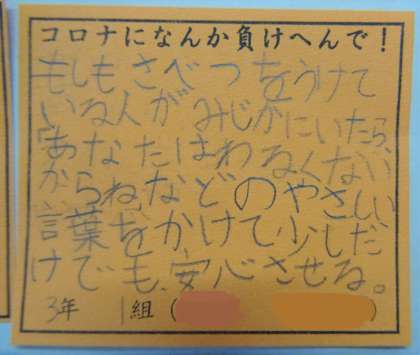 コロナになんか負けへんで！
もしもさべつをうけて
いる人がみじかにいたら、
「あなたはわるくない
からね」などのやさしい
言葉をかけて少しだ
けでも、安心させる。
3年 1組（ ）